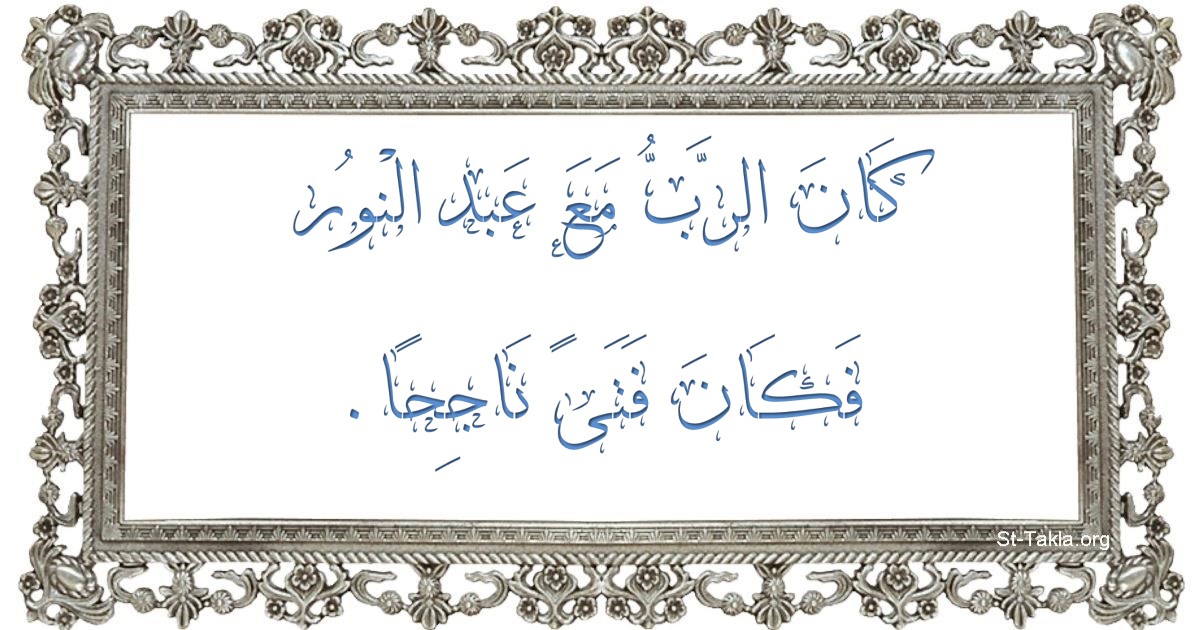 كَانَ الرَّبُّ مَعَ عَبْد الْنوُر
فَكَانَ فَتَىً نَاجِحًا .
St-Takla.org